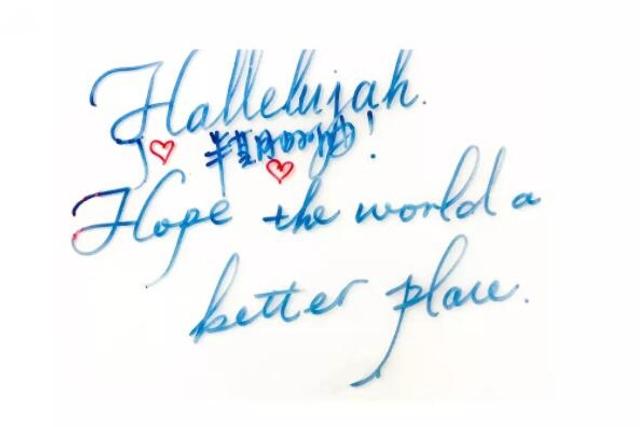 Hallelujah.
Hope the world a
better place.